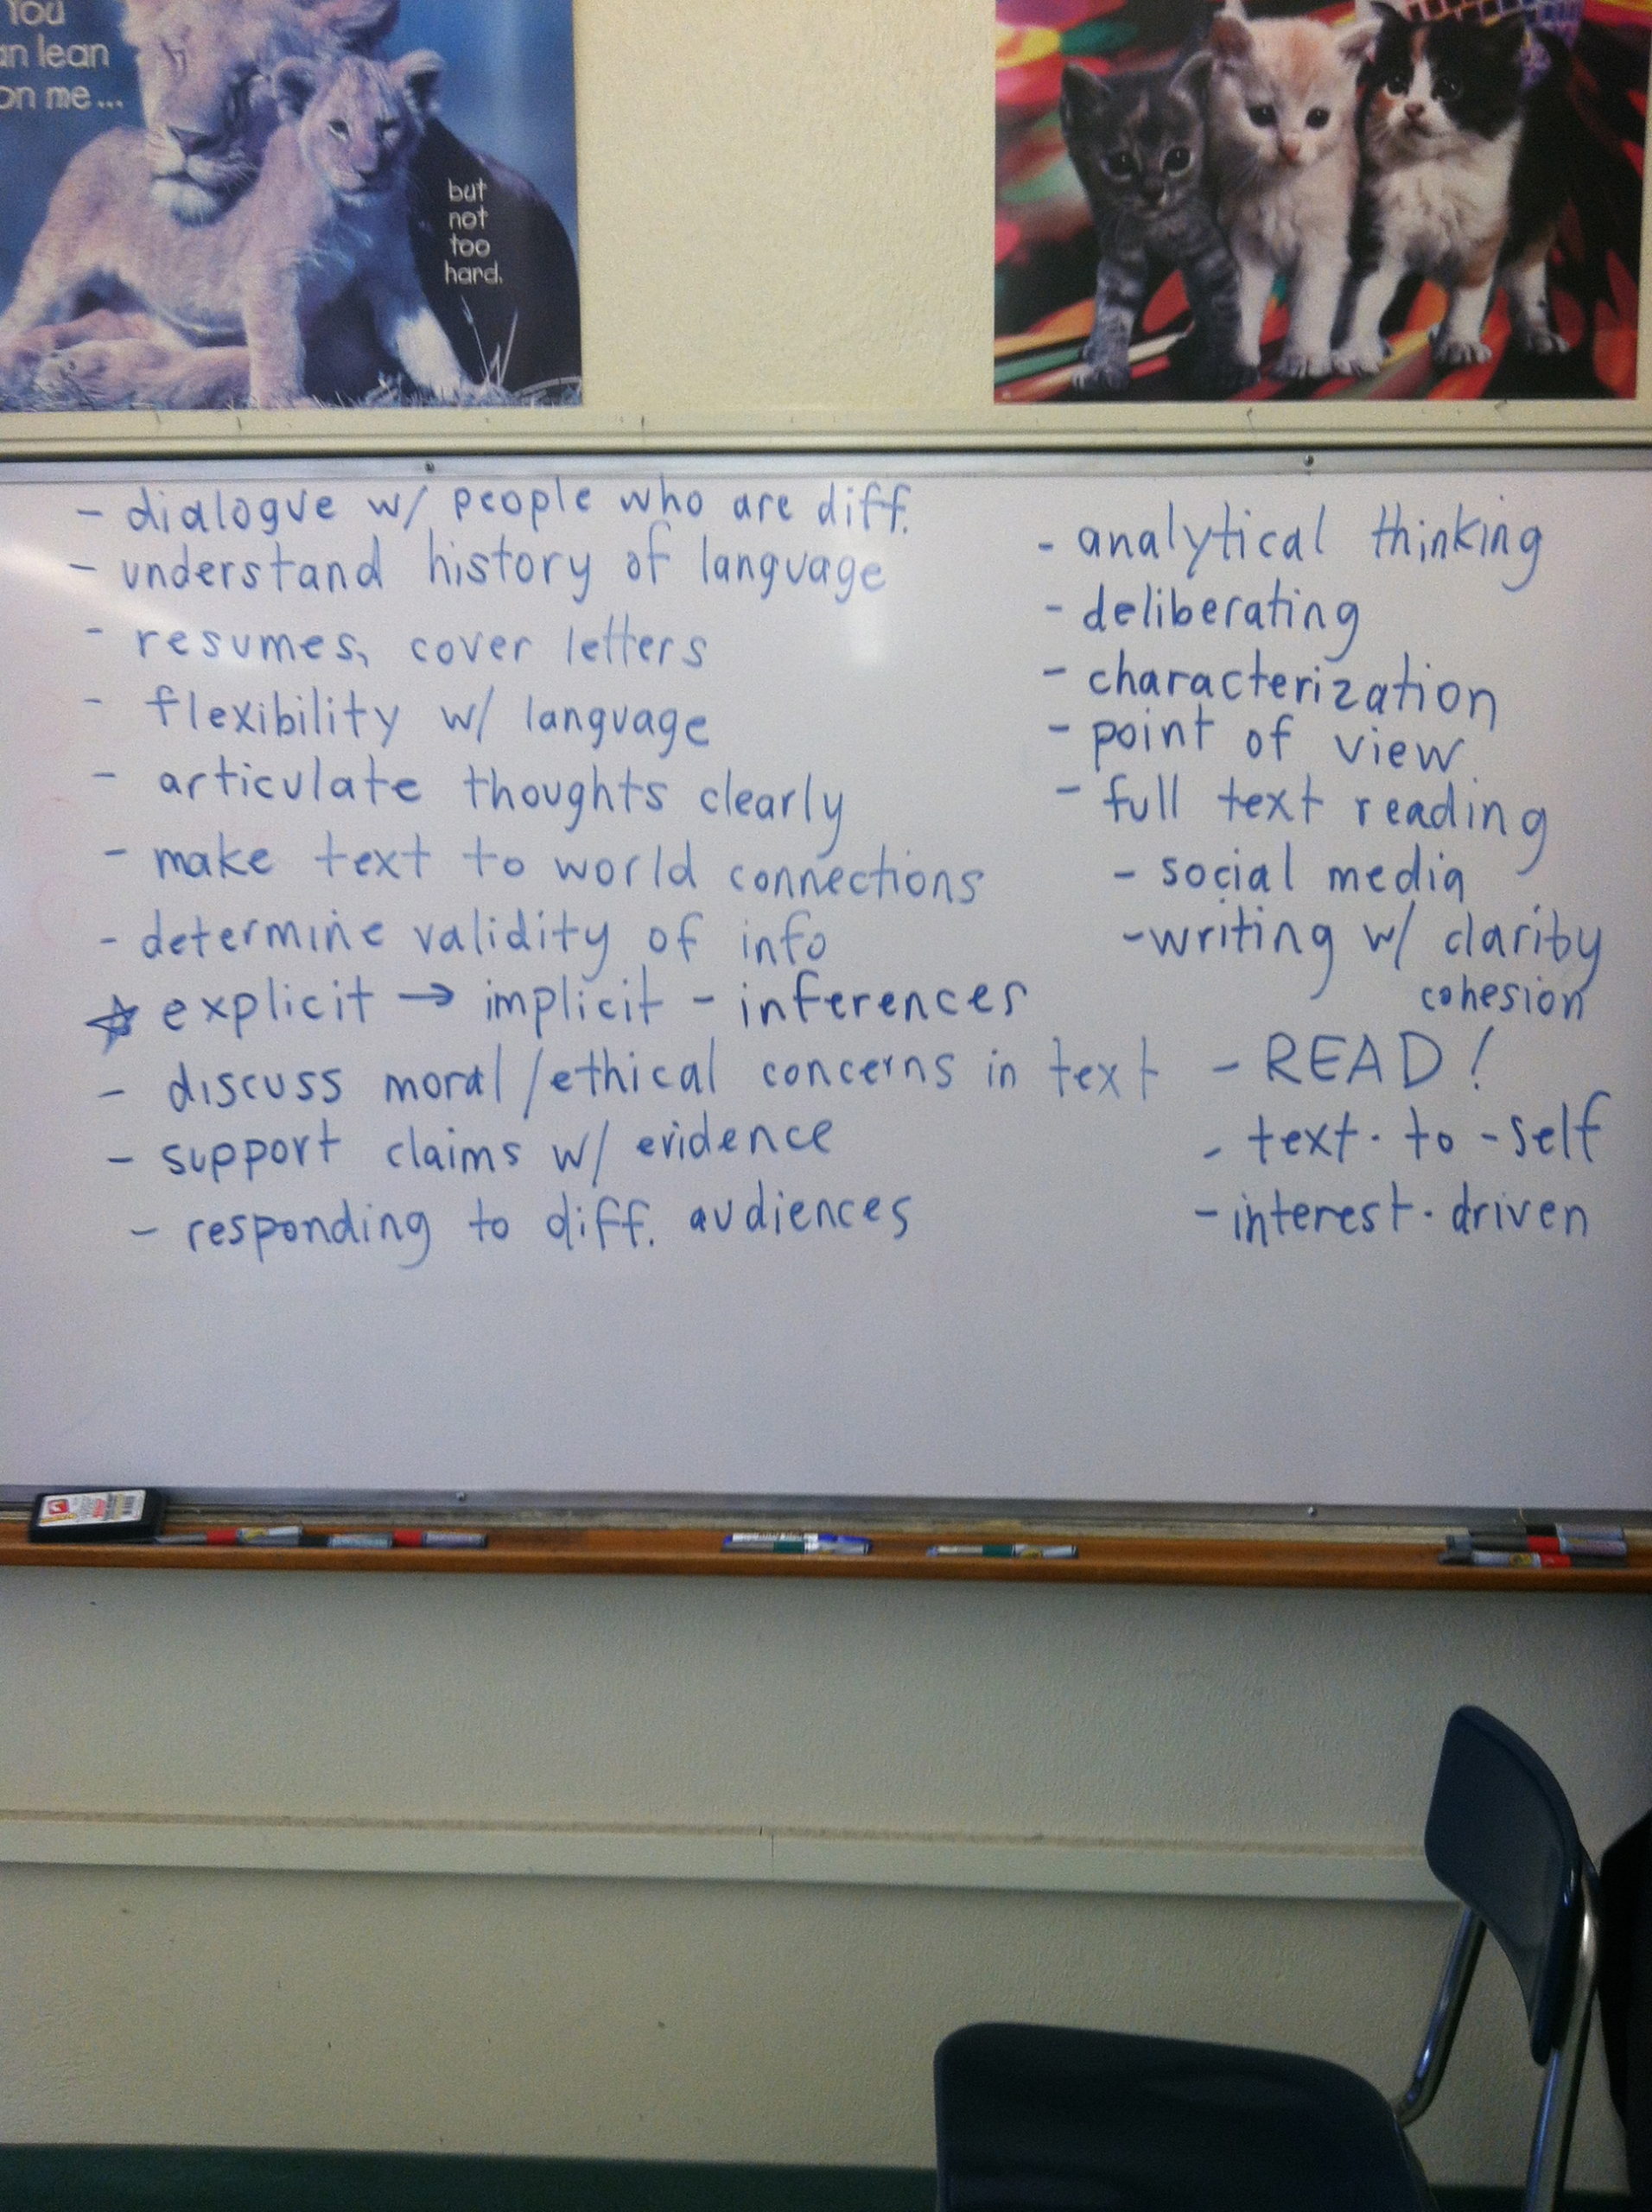 You
an lean
on me...
but
not
too
hard.
- dialogue w/ people who are diff.
- understand history of language
- resumes, cover letters
- flexibility w/ language
- articulate thoughts clearly
- make text to world connections
- determine validity of info
☆ explicit → implicit - inferences
- discuss moral/ethical concerns in text
- support claims w/ evidence
- responding to diff. audiences
- analytical thinking
- deliberating
- characterization
- point of view
- full text reading
- social media
- writing w/ clarity
cohesion
- READ!
- text-to-self
- interest-driven